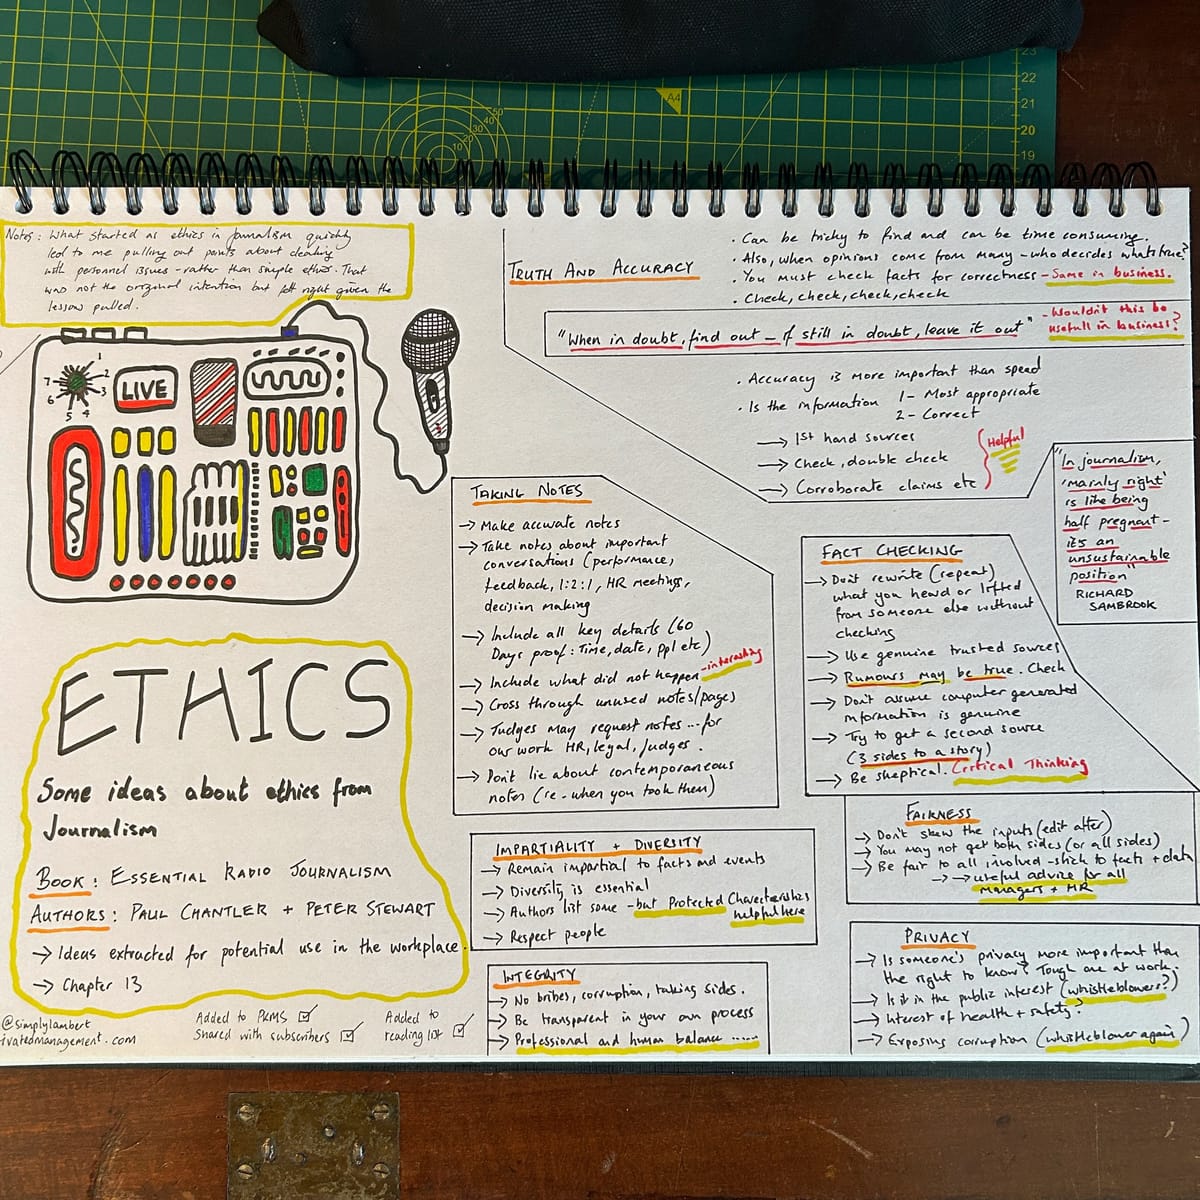 23
22
21
20
19
A4
50
40
30
20
10
Notes: What started as ethics in Journalism quickly
led to me pulling out points about dealing
with personnel issues - rather than simple ethics. That
was not the original intention but felt right given the
lesson pulled.
1
2
3
4
5
6
7
LIVE
ETHICS
Some ideas about ethics from
Journalism
BOOK: ESSENTIAL RADIO JOURNALISM
AUTHORS: PAUL CHANTLER + PETER STEWART
→ Ideas extracted for potential use in the workplace.
→ Chapter 13
@simplylambert
ivatedmanagement.com
Added to PKMS
Shared with subscribers
Added to
reading list
TRUTH AND ACCURACY
· Can be tricky to find and can be time consuming.
· Also, when opinions come from many - who decides whats true?
· You must check facts for correctness - Same in business.
· Check, check, check, check
"When in doubt, find out - if still in doubt, leave it out"
- Wouldn't this be
usefull in business?
· Accuracy is more important than speed
· Is the information 1- Most appropriate
2- Correct
→ 1st hand sources
→ Check, double check
→ Corroborate claims etc
Helpful
"In journalism,
'mainly right'
is like being
half pregnant -
its an
unsustainable
position"
RICHARD
SAMBROOK
TAKING NOTES
→ Make accurate notes
→ Take notes about important
conversations (performance,
feedback, 1:2:1, HR meetings,
decision making
→ Include all key details (60
Days proof: Time, date, ppl etc)
→ Include what did not happen - interesting
→ Cross through unused notes/pages
→ Judges may request notes... for
our work HR, legal, Judges.
→ Don't lie about contemporaneous
notes (re - when you took them)
FACT CHECKING
→ Don't rewrite (repeat)
what you heard or lifted
from someone else without
checking
→ Use genuine trusted sources
→ Rumours may be true. Check
→ Don't assume computer generated
information is genuine
→ Try to get a second source
(3 sides to a story)
→ Be skeptical. Critical Thinking
IMPARTIALITY + DIVERSITY
→ Remain impartial to facts and events
→ Diversity is essential
→ Authors list some - but Protected Characteristics
helpful here
→ Respect people
FAIRNESS
→ Don't skew the inputs (edit after)
→ You may not get both sides (or all sides)
→ Be fair to all involved - stick to facts + data
→ → useful advice for all
Managers + HR
INTEGRITY
→ No bribes, corruption, taking sides.
→ Be transparent in your own process
→ Professional and human balance ......
PRIVACY
→ Is someone's privacy more important than
the right to know? Tough one at work.
→ Is it in the public interest (whistleblowers?)
→ Interest of health + safety?
→ Exposing corruption (whistleblower again)